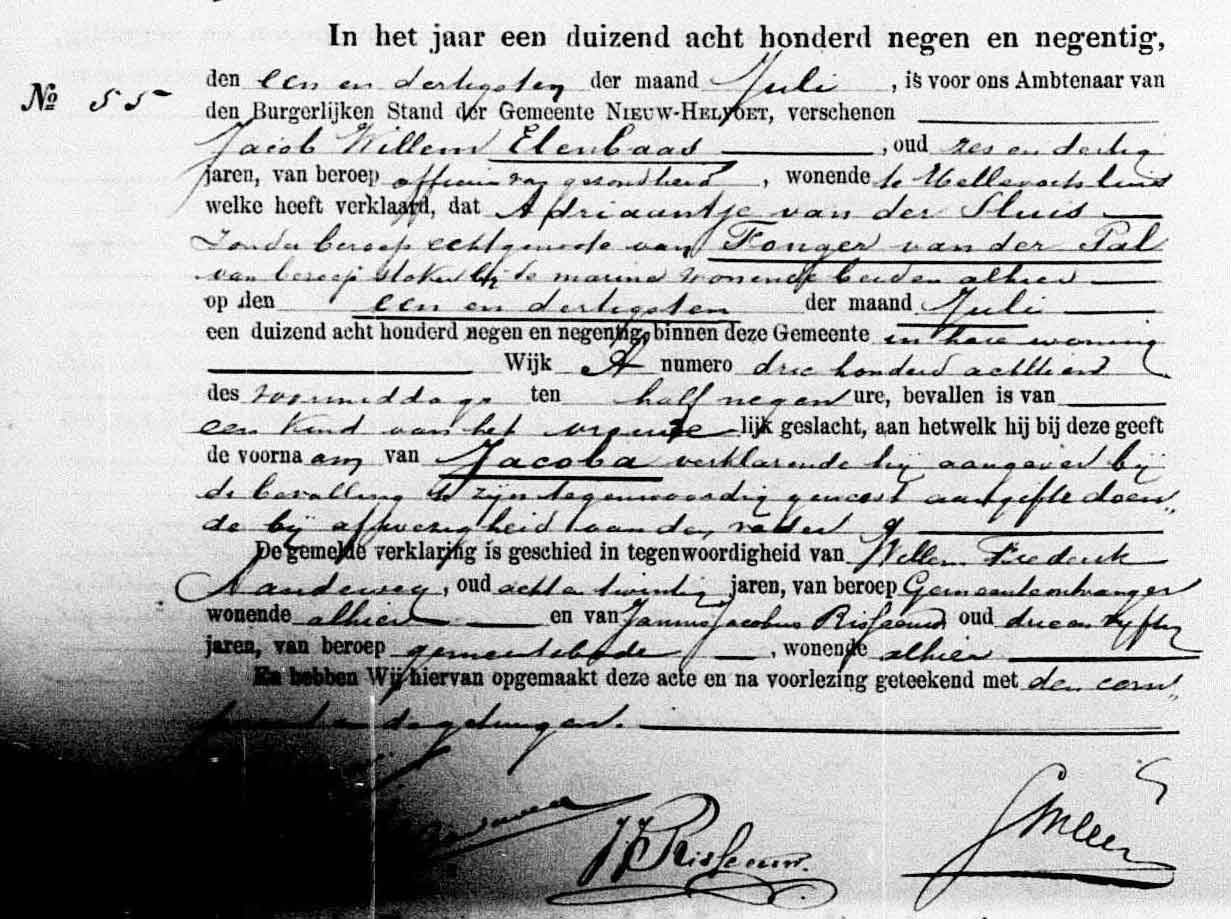 In het jaar een duizend acht honderd negen en negentig,
den een en dertigsten der maand Juli, is voor ons Ambtenaar van
No 55
den Burgerlijken Stand der Gemeente NIEUW-HELVOET, verschenen
Jacob Willem Elenbaas, oud zes en dertig
jaren, van beroep officier van gezondheid, wonende te Hellevoetsluis
welke heeft verklaard, dat Adriaantje van der Sluis
zonder beroep echtgenoote van Fonger van der Pal
van beroep stoker bij de marine wonende beiden alhier
op den een en dertigsten der maand Juli
een duizend acht honderd negen en negentig, binnen deze Gemeente in hare woning
Wijk A numero drie honderd achttien
des voormiddags ten half negen ure, bevallen is van
een kind van het vrouwelijk geslacht, aan hetwelk hij bij deze geeft
de voornaam van Jacoba verklarende hij aangever bij
de bevalling te zijn tegenwoordig geweest aangifte doen„
de bij afwezigheid van den vader
De gemelde verklaring is geschied in tegenwoordigheid van Willem Frederik
oud acht en twintig jaren, van beroep Gemeenteontvanger
wonende alhier en van Jannis Jacobus Risseeuw oud drie en vijftig
jaren, van beroep gemeentebode, wonende alhier
En hebben Wij hiervan opgemaakt deze acte en na voorlezing geteekend met den com„
parant en de getuigen.
JJ Risseeuw.